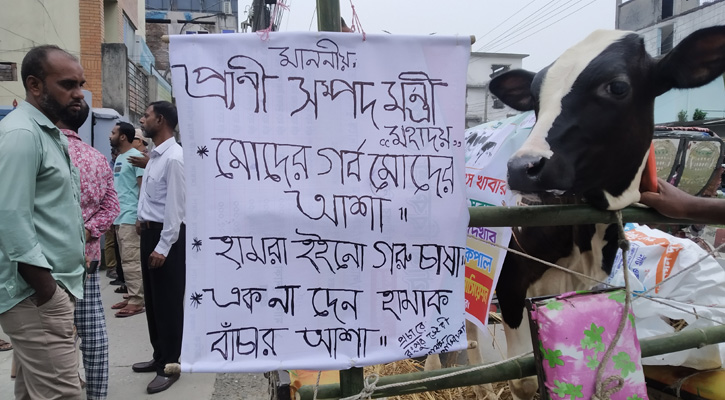 মাননীয়,
প্রাণী সম্পদ মন্ত্রী
“মহাদয়”
* মোদের গর্ব মোদের
আশা॥
* হামরা হইনো গরু চাষা
* এক না দেন হামাক
বাঁচার আশা॥
প্রচারে
খাবার